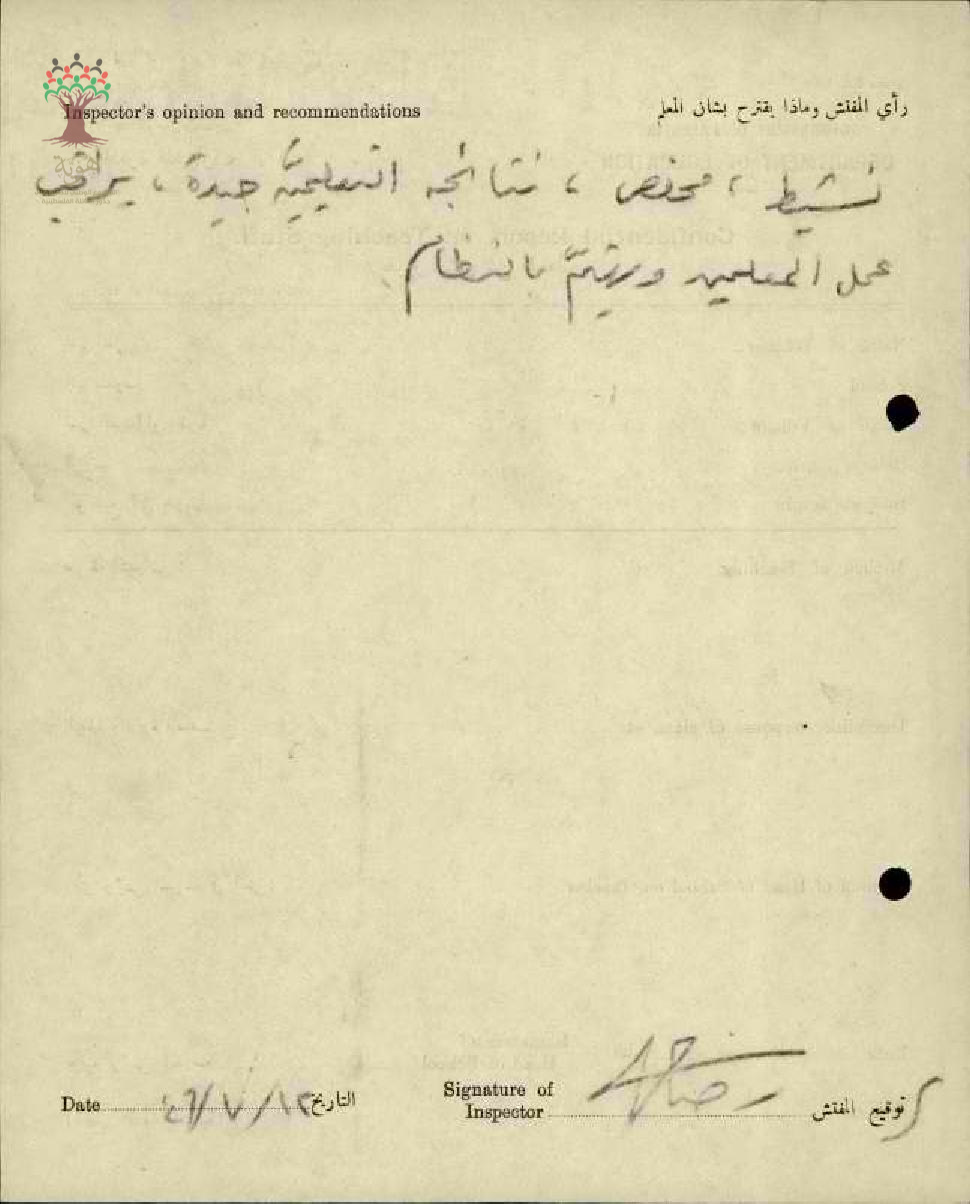 Inspector's opinion and recommendations
رأي المفتش وماذا يقترح بشان المعلم
هوية
نشيط ، مخلص ، نتائجه التعليميّة جيدة ، يراقب
عمل المعلمين ويهتمّ بالنظام .
Date التاريخ ١٢/٧/٤٦
Signature of Inspector توقيع المفتش